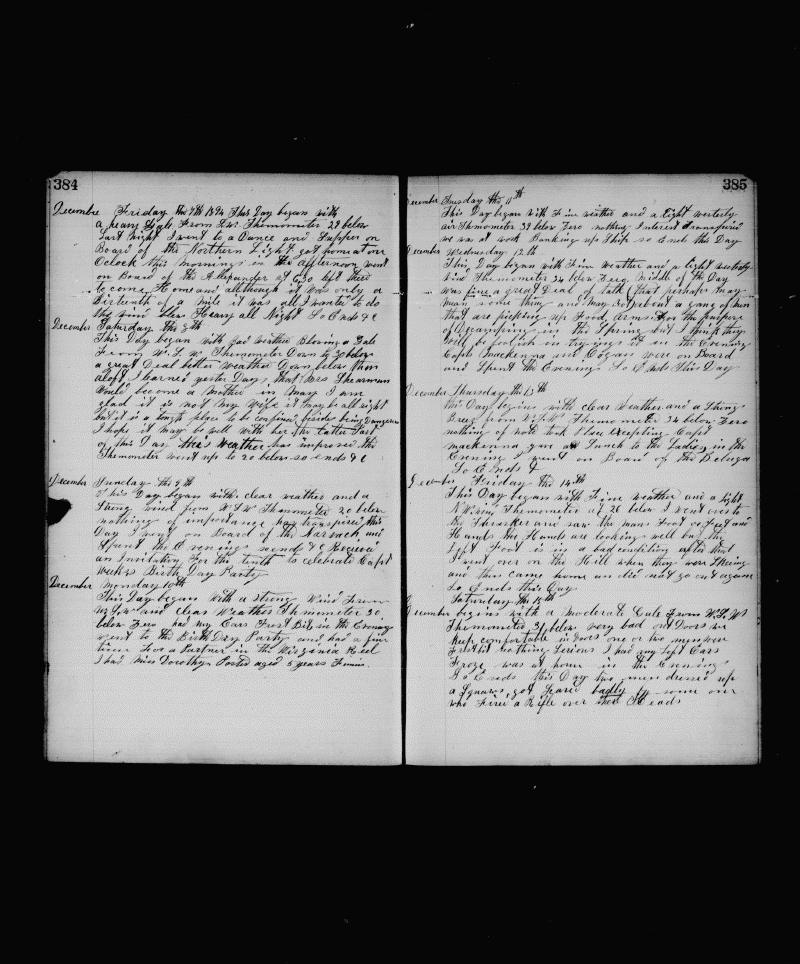 384
December Friday the 7th 1894 This Day began with
a heavy Gale From S.W. Thermometer 28 below
Last Night I went to a Dance and Supper on
Board of the Northern Light got home at one
Oclock this morning in the afternoon went
on Board of the Alexander at 9.30 left there
to come Home and although it was only a
of a mile it was all I wanted to do
the wind blew Heavy all Night So Ends &c
December Saturday the 8th
This Day began with weather Blowing a Gale
From W.S.W. Thermometer Down to 30 below
a great Deal better weather Down below than
aloft I learned yester Day that Mrs Shearman
Would become a Mother in May I am
glad it is not My Wife it may be all right
but it is a tough place to be confined besides being Dangerous
I hope it may be well with her the latter Part
of this Day the weather has improved the
Thermometer went up to 20 below so ends &c
December Sunday the 9th
This Day began with clear weather and a
Strong wind from W.S.W Thermometer 20 below
nothing of importance has transpired this
Day I went on Board of the Narwhal and
Spent the Evening so ends &c Received
an Invitation For the tenth to celebrate Capt
Weeks Birth Day Party
December Monday 10th
This Day began with a Strong Wind From
and clear Weather Thermometer 30
below Zero had my Ears Frost Bit in the Evening
went to the Birth Day Party and had a fine
time For a Partner in the Virginia Reel
I had Miss Dorothy Porter aged 5 years Finis.
385
December Tuesday the 11th
This Day began with Fine weather and a light westerly
air Thermometer 38 below Zero nothing Interest Transpired
we was at work Banking up Ship so Ends this Day
December Wednesday 12th
This Day began with Fine Weather and a light westerly
Thermometer 34 below Zero Middle of the Day
was fine a great Deal of talk (that perhaps may
mean some thing and may not) about a gang of men
that are picking up Food, Arms For the purpose
of Decamping in the Spring but I think they
Will be foolish in trying it in the Evening
Capts Mackenna and Cogan were on Board
and Spent the Evening So Ends This Day
December Thursday the 13th
this Day begins with clear Weather and a Strong
Breeze from Thermometer 34 below Zero
nothing of note took Place Excepting Capt
Mackenna gave a Lunch to the Ladies in the
Evening I went on Board of the Beluga
So Ends &
December Friday the 14th
This Day began with Fine weather and a light
N.W. wind Thermometer at 26 below I went over to
the Thrasher and saw the mans Foot and
Hands the Hands are looking well but the
Left Foot is in a bad condition after that
I went over on the Hill when they were Skeeing
and then came home an did not go out again
So Ends this Day
Saturday the 15th
December begins with a Moderate Gale From
Thermometer 31 below very bad out Doors we
keep comfortable in Doors one or two men were
Frostbit nothing Serious I had my Left Ears
Froze was at home in the Evening
So Ends this Day two men dressed up
a Squaws got Scared badly by some one
who Fired a Rifle over their Heads